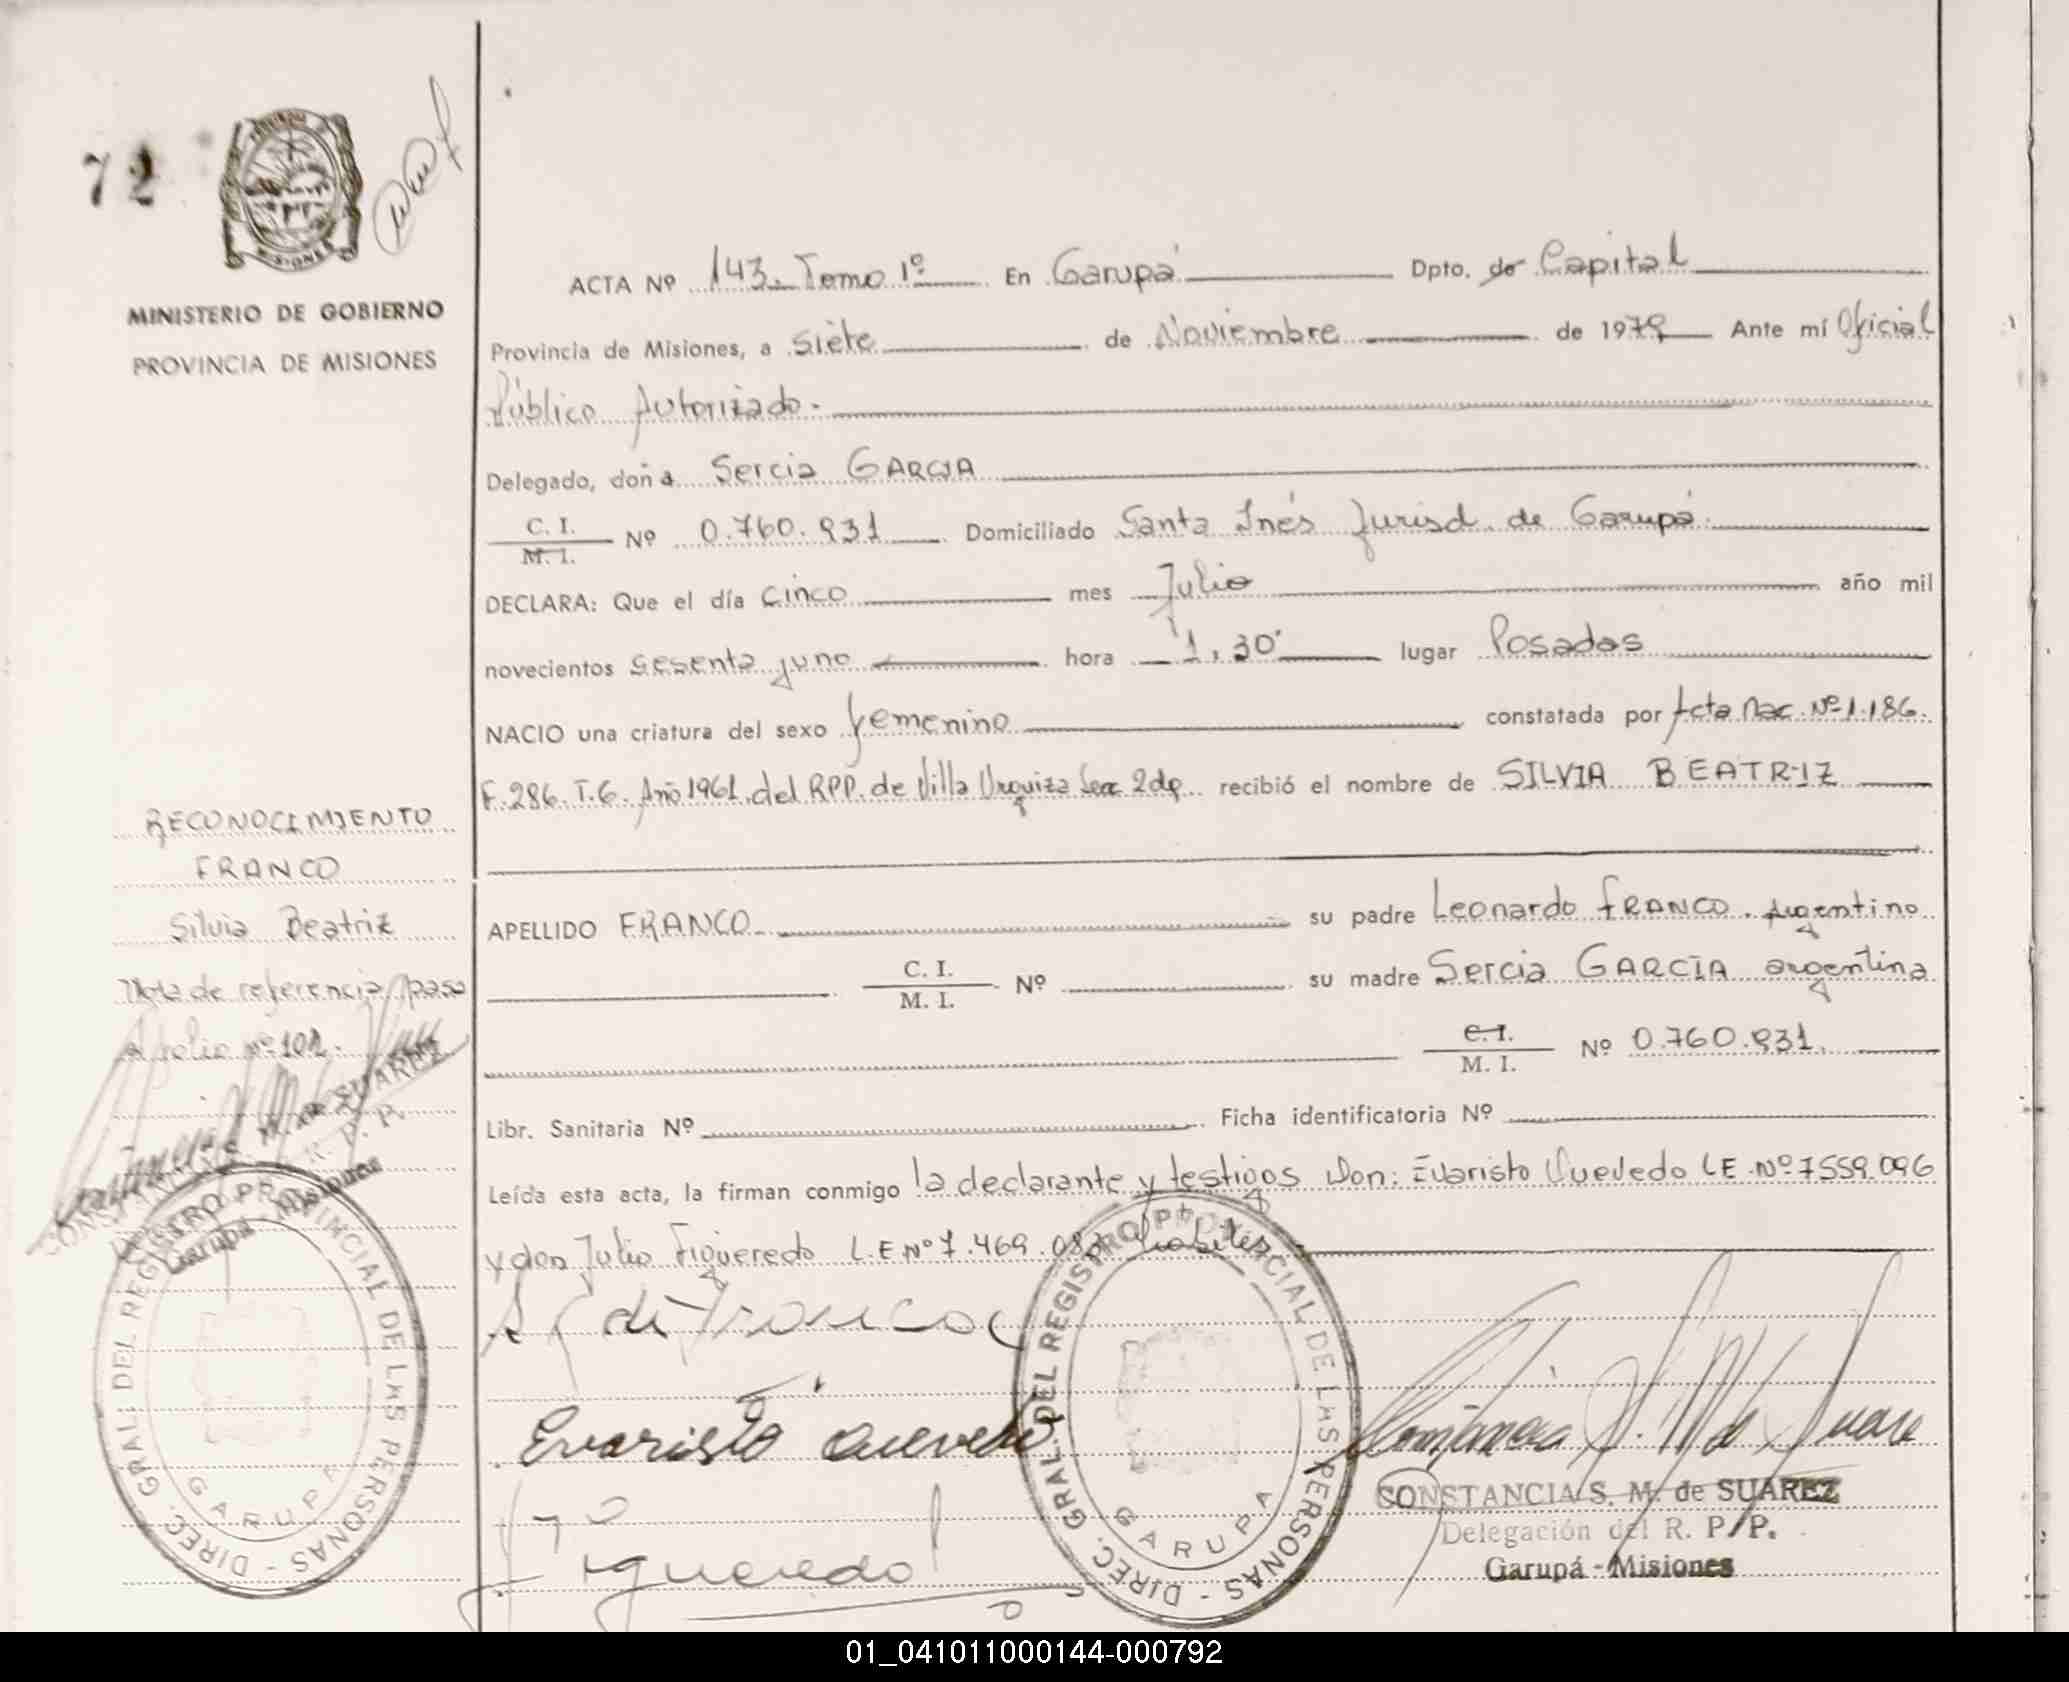 72
MINISTERIO DE GOBIERNO
PROVINCIA DE MISIONES
ACTA Nº 143. Tomo 1º En Garupá Dpto. de Capital
Provincia de Misiones, a siete de Noviembre de 1979 Ante mí Oficial
Público Autorizado.
Delegado, doña Sercia GARCIA
C. I.
M. I. Nº 0.760.931 Domiciliado Santa Inés Jurisd. de Garupá.
DECLARA: Que el día cinco mes Julio año mil
novecientos sesenta y uno hora 1,30 lugar Posadas
NACIO una criatura del sexo femenino constatada por Acta Nac. Nº 1.186.
F. 286. T. 6. Año 1961. del RPP. de Villa Urquiza Secc 2da. recibió el nombre de SILVIA BEATRIZ
APELLIDO FRANCO su padre Leonardo FRANCO. Argentino
C. I.
M. I. Nº su madre Sercia GARCÍA argentina
C. I.
M. I. Nº 0.760.931.
Libr. Sanitaria Nº Ficha identificatoria Nº
Leída esta acta, la firman conmigo la declarante y testigos Don: Evaristo Quevedo LE. Nº 7559.096
y don Julio Figueredo L.E. Nº 7.469. habiles
de Franco
Evaristo Quevedo
Figueredo
CONSTANCIA S. M. de SUAREZ
Delegación del R. P. P.
Garupá - Misiones
DIREC. GRAL. DEL REGISTRO PROVINCIAL DE LAS PERSONAS -
GARUPA
RECONOCIMIENTO
FRANCO
Silvia Beatriz
Nota de referencia pasa
a folio nº 101.
M. de SUAREZ
R. P. P.
Garupá - Misiones
DIREC. GRAL. DEL REGISTRO PROVINCIAL DE LAS PERSONAS -
GARUPA
01_041011000144-000792